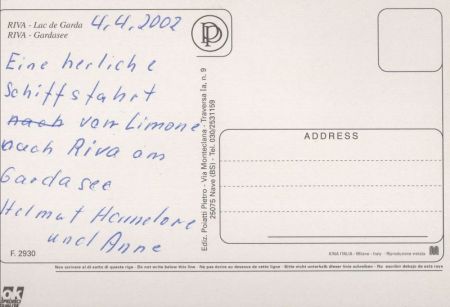 RIVA - Lac de Garda 4.4.2002
RIVA - Gardasee
Eine herliche
Schiffsfahrt
nach von Limone
nach Riva am
Gardasee
Helmut Hannelore
und Anne
F. 2930
Ediz. Poiatti Pietro - Via Monteclana - Traversa Ia, n. 9
25075 Nave (BS) - Tel. 030/2531159
ADDRESS
KINA ITALIA - Milano - Italy - Riproduzione vietata
Non scrivere al di sotto di questa riga - Do not write below this line - Ne pas écrire au dessous de cette ligne - Bitte nicht unterhalb dieser linie schreiben - No escribir debajo de esta raya
ok